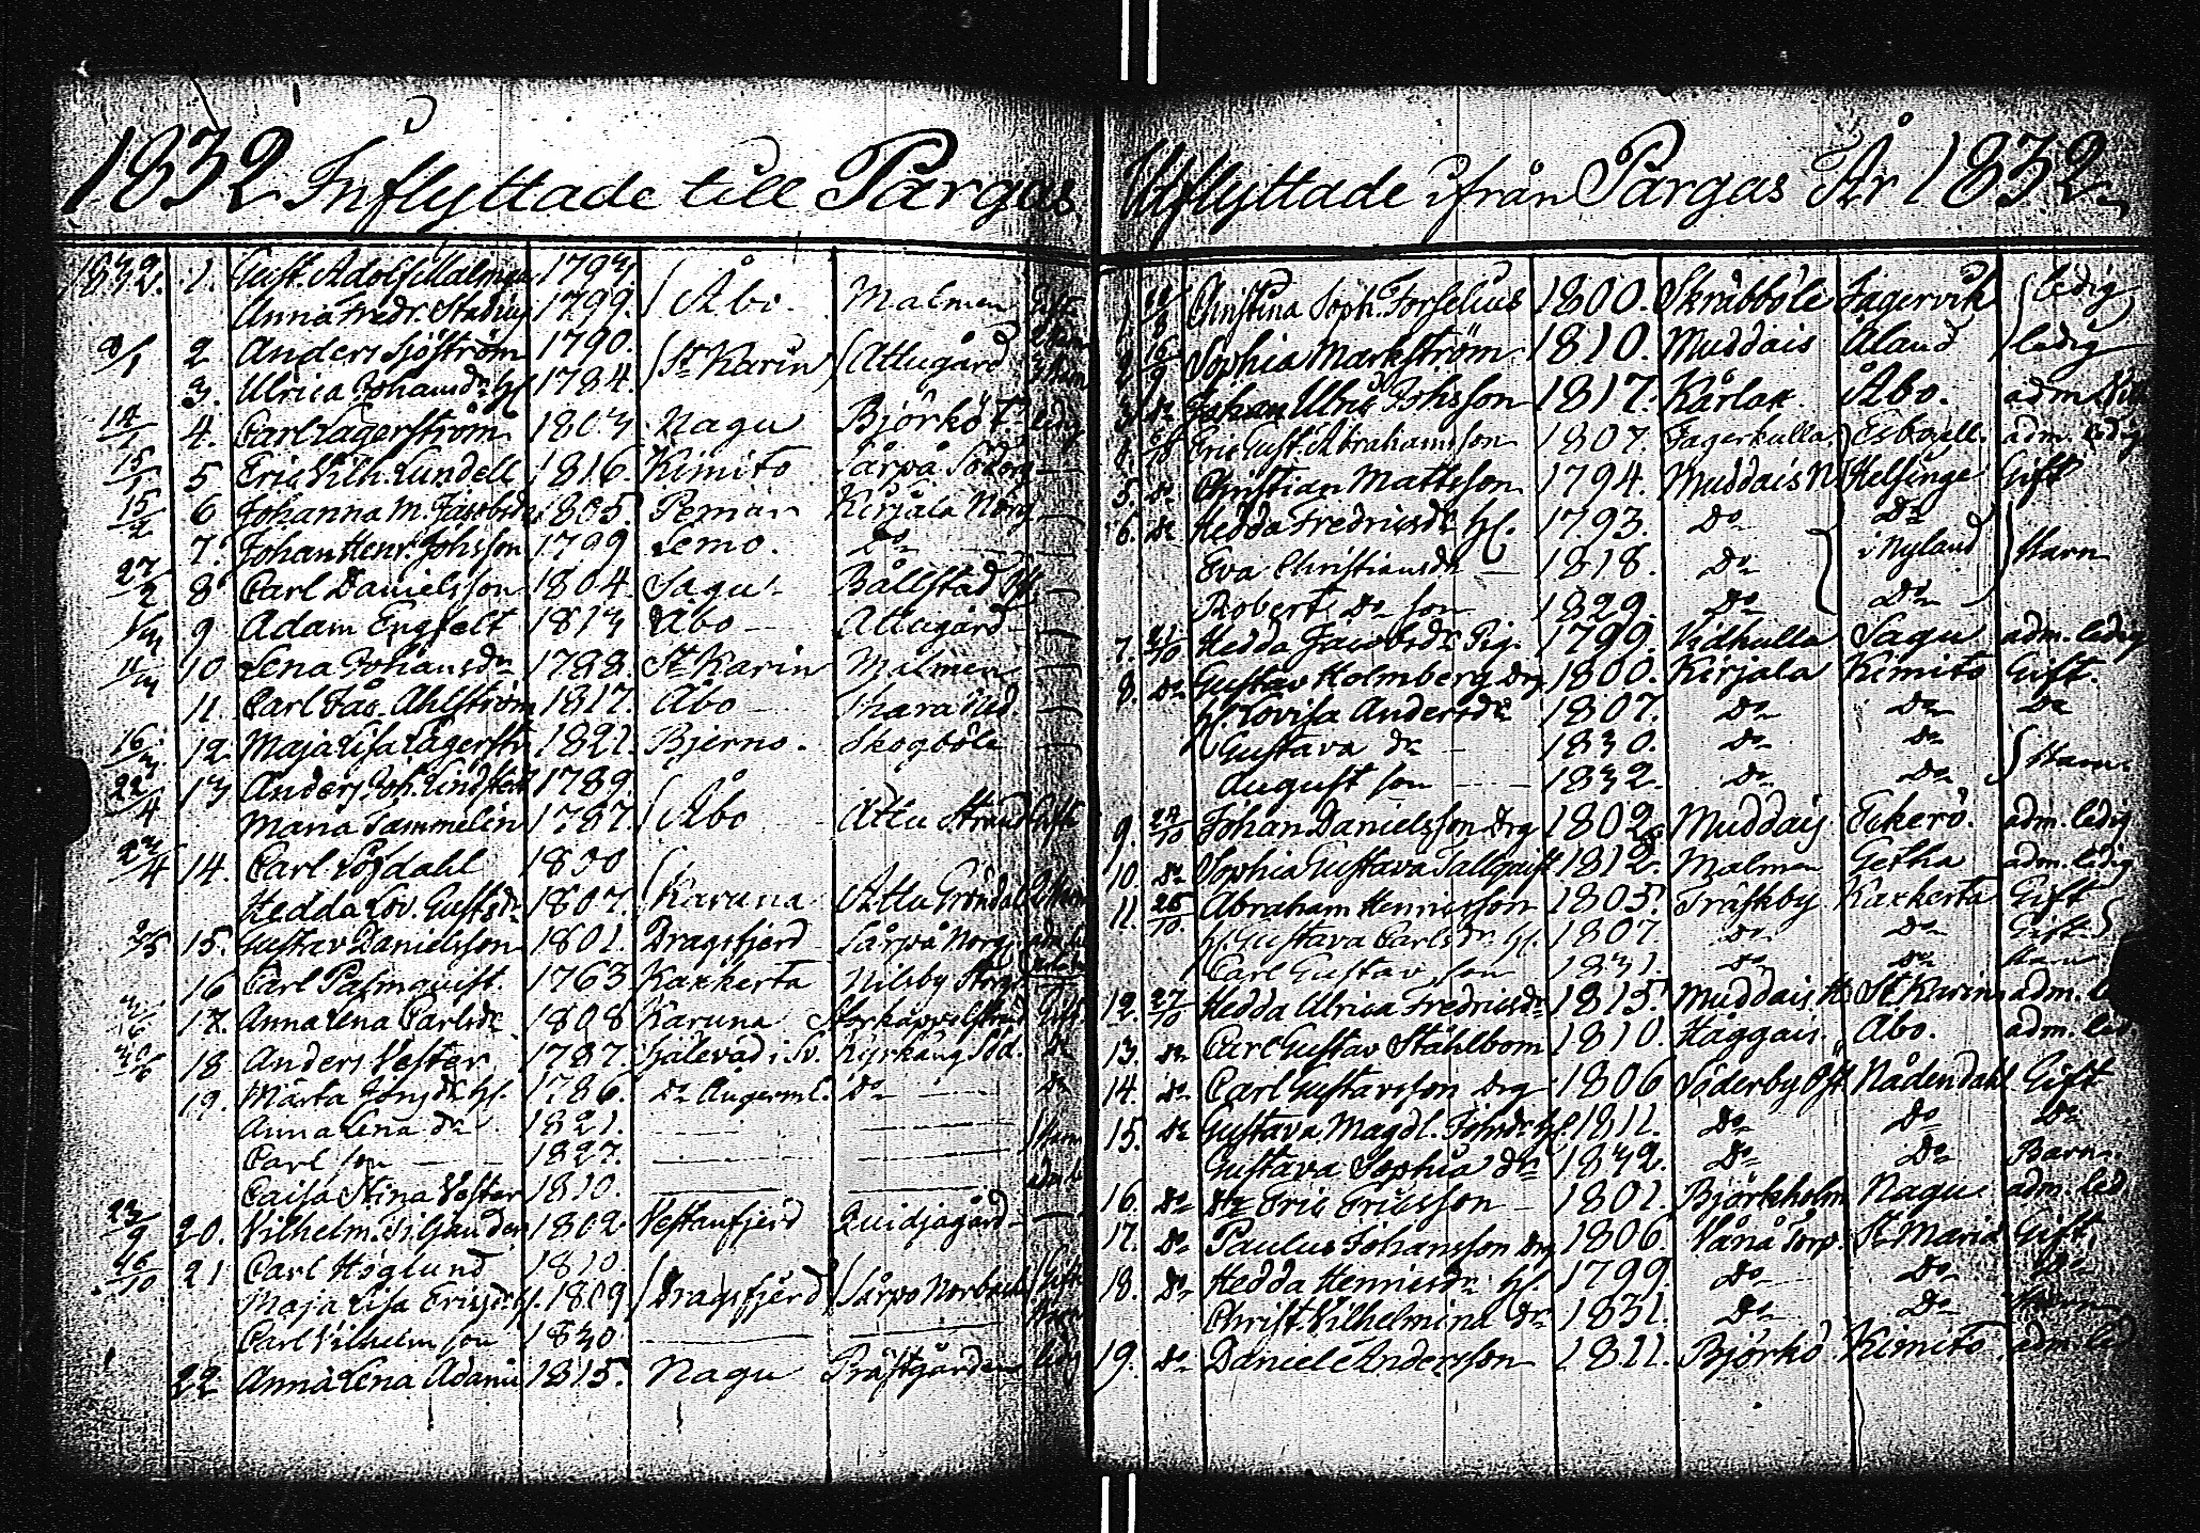 1832 Inflyttade till Pargas
1832. 1. Gust. Adolf Malmgr 1793
Anna Fredr. Stadius 1799. Åbo. Malmen Gift
3/1 2 Anders Sjöström 1790. St Karin Attugård
3. Ulrica Johansdr hu 1784.
14/1 4. Carl Lagerström 1803 Nagu Björkö T. ledig
15/1 5 Eric Vilh. Lundell 1816 Kimito Särpå Söderg
15/2 6 Johanna M. Jacobsdr 1805. Pemar Kirjala Norrg
7. Johan Henr. Johsson 1799 Lemo. Do
27/2 8 Carl Danielsson 1804. Sagu Bållstad
9 Adam Engfelt 1813 Åbo Attugård
10 Lena Johansdr 1788. St Karin Malmen
11 Carl Jac. Ahlström 1817. Åbo
16/3 12 Maja Lisa Lagerstr 1821. Bjerno. Skogböle
22/4 13 Anders Joh. Lindstedt 1789.
Maria Tammelin 1787. Åbo Attu Strand Gift
23/4 14. Carl Löfdahl 1800
Hedda Lov. Gustsdr 1807. Karuna Attu Gröndal
15. Gustav Danielsson 1801. Dragsfjerd Särpå Norrg
16 Carl Palmqvist. 1763 Kakkerta Nilsby
17. Anna Lena Carlsdr 1808 Karuna Gift
18 Anders Vester 1787. Sjalevad i Sv. Kyrkäng Söd. Do
19. Märta Jonsdr hu. 1786. Do Ångerml. Do Do
Anna Lena dr 1821.
Carl son 1827. Barn
Caisa Stina Vester 1810.
23/9 20. Vilhelm Siljander 1802. Vestanfjerd Qvidjagård
26/10 21 Carl Höglund 1810
Maja Lisa Ericsdr h. 1809 Dragsfjerd Särpo Norbacka Gift
Carl Vilhelm son 1830 Barn
22 Anna Lena Adamsd 1815. Nagu Prästgården ledig
Utflyttade ifrån Pargas År 1832.
1. Christina Soph. Forselius 1800. Skräbböle Fagervik ledig
2. 16/9 Sophia Markström 1810. Muddais Åland ledig
3. Do Johan Ulric Johsson 1817. Kårlax Åbo. adm.
4. Eric Gust. Abrahamsson 1807. Fagerkulla Esbo adm. ledig
5. Do Christian Mattsson 1794. Muddais N. Helsinge Gift
6. Do Hedda Fredricsdr hu. 1793. Do Do
Eva Christiansdr 1818. Do i Nyland Barn
Robert Do son 1829. Do Do
7. 21/10 Hedda Jacobsdr Pig. 1799. Vidkulla Sagu adm. ledig
8. Do Gustav Holmberg Drg 1800. Kirjala Kimito Gift.
hu. Lovisa Andersdr 1807. Do Do Do
Gustava dr 1830. Do Do Barn.
August son 1832. Do Do
9. 24/10 Johan Danielsson Drg 1802 Muddais Eckerö. adm. ledig
10. Do Sophia Gustava Tallqvist 1812. Malmen Getha adm. ledig
11. 26/10. Abraham Henricsson 1805. Träskby Kakkerta Gift
hu. Gustava Carlsdr. hu. 1807. Do Do Gift
Carl Gustav son 1831. Do Do Barn
12. 27/10 Hedda Ulrica Fredricsdr 1815. Muddais St Karins adm.
13. Do Carl Gustav Ståhlbom 1810. Häggais. Åbo. adm. led
14. Do Carl Gustavsson Drg 1806 Söderby Öst Nådendahl Gift
15. Do Gustava Magdl. Johsdr hu. 1811. Do Do Do
Gustava Sophia dr 1832. Do Do Barn.
16. Do Eric Ericsson 1801. Björkholm Nagu adm. led
17. Do Paulus Johansson Drg 1806. Vånå Torp. St Marie Gift,
18. Do Hedda Henricsdr hu. 1799. Do Do Do
Christ. Vilhelmina dr 1831. Do Do Barn
19. Do Daniel Andersson 1811. Björkö Kimito adm. led